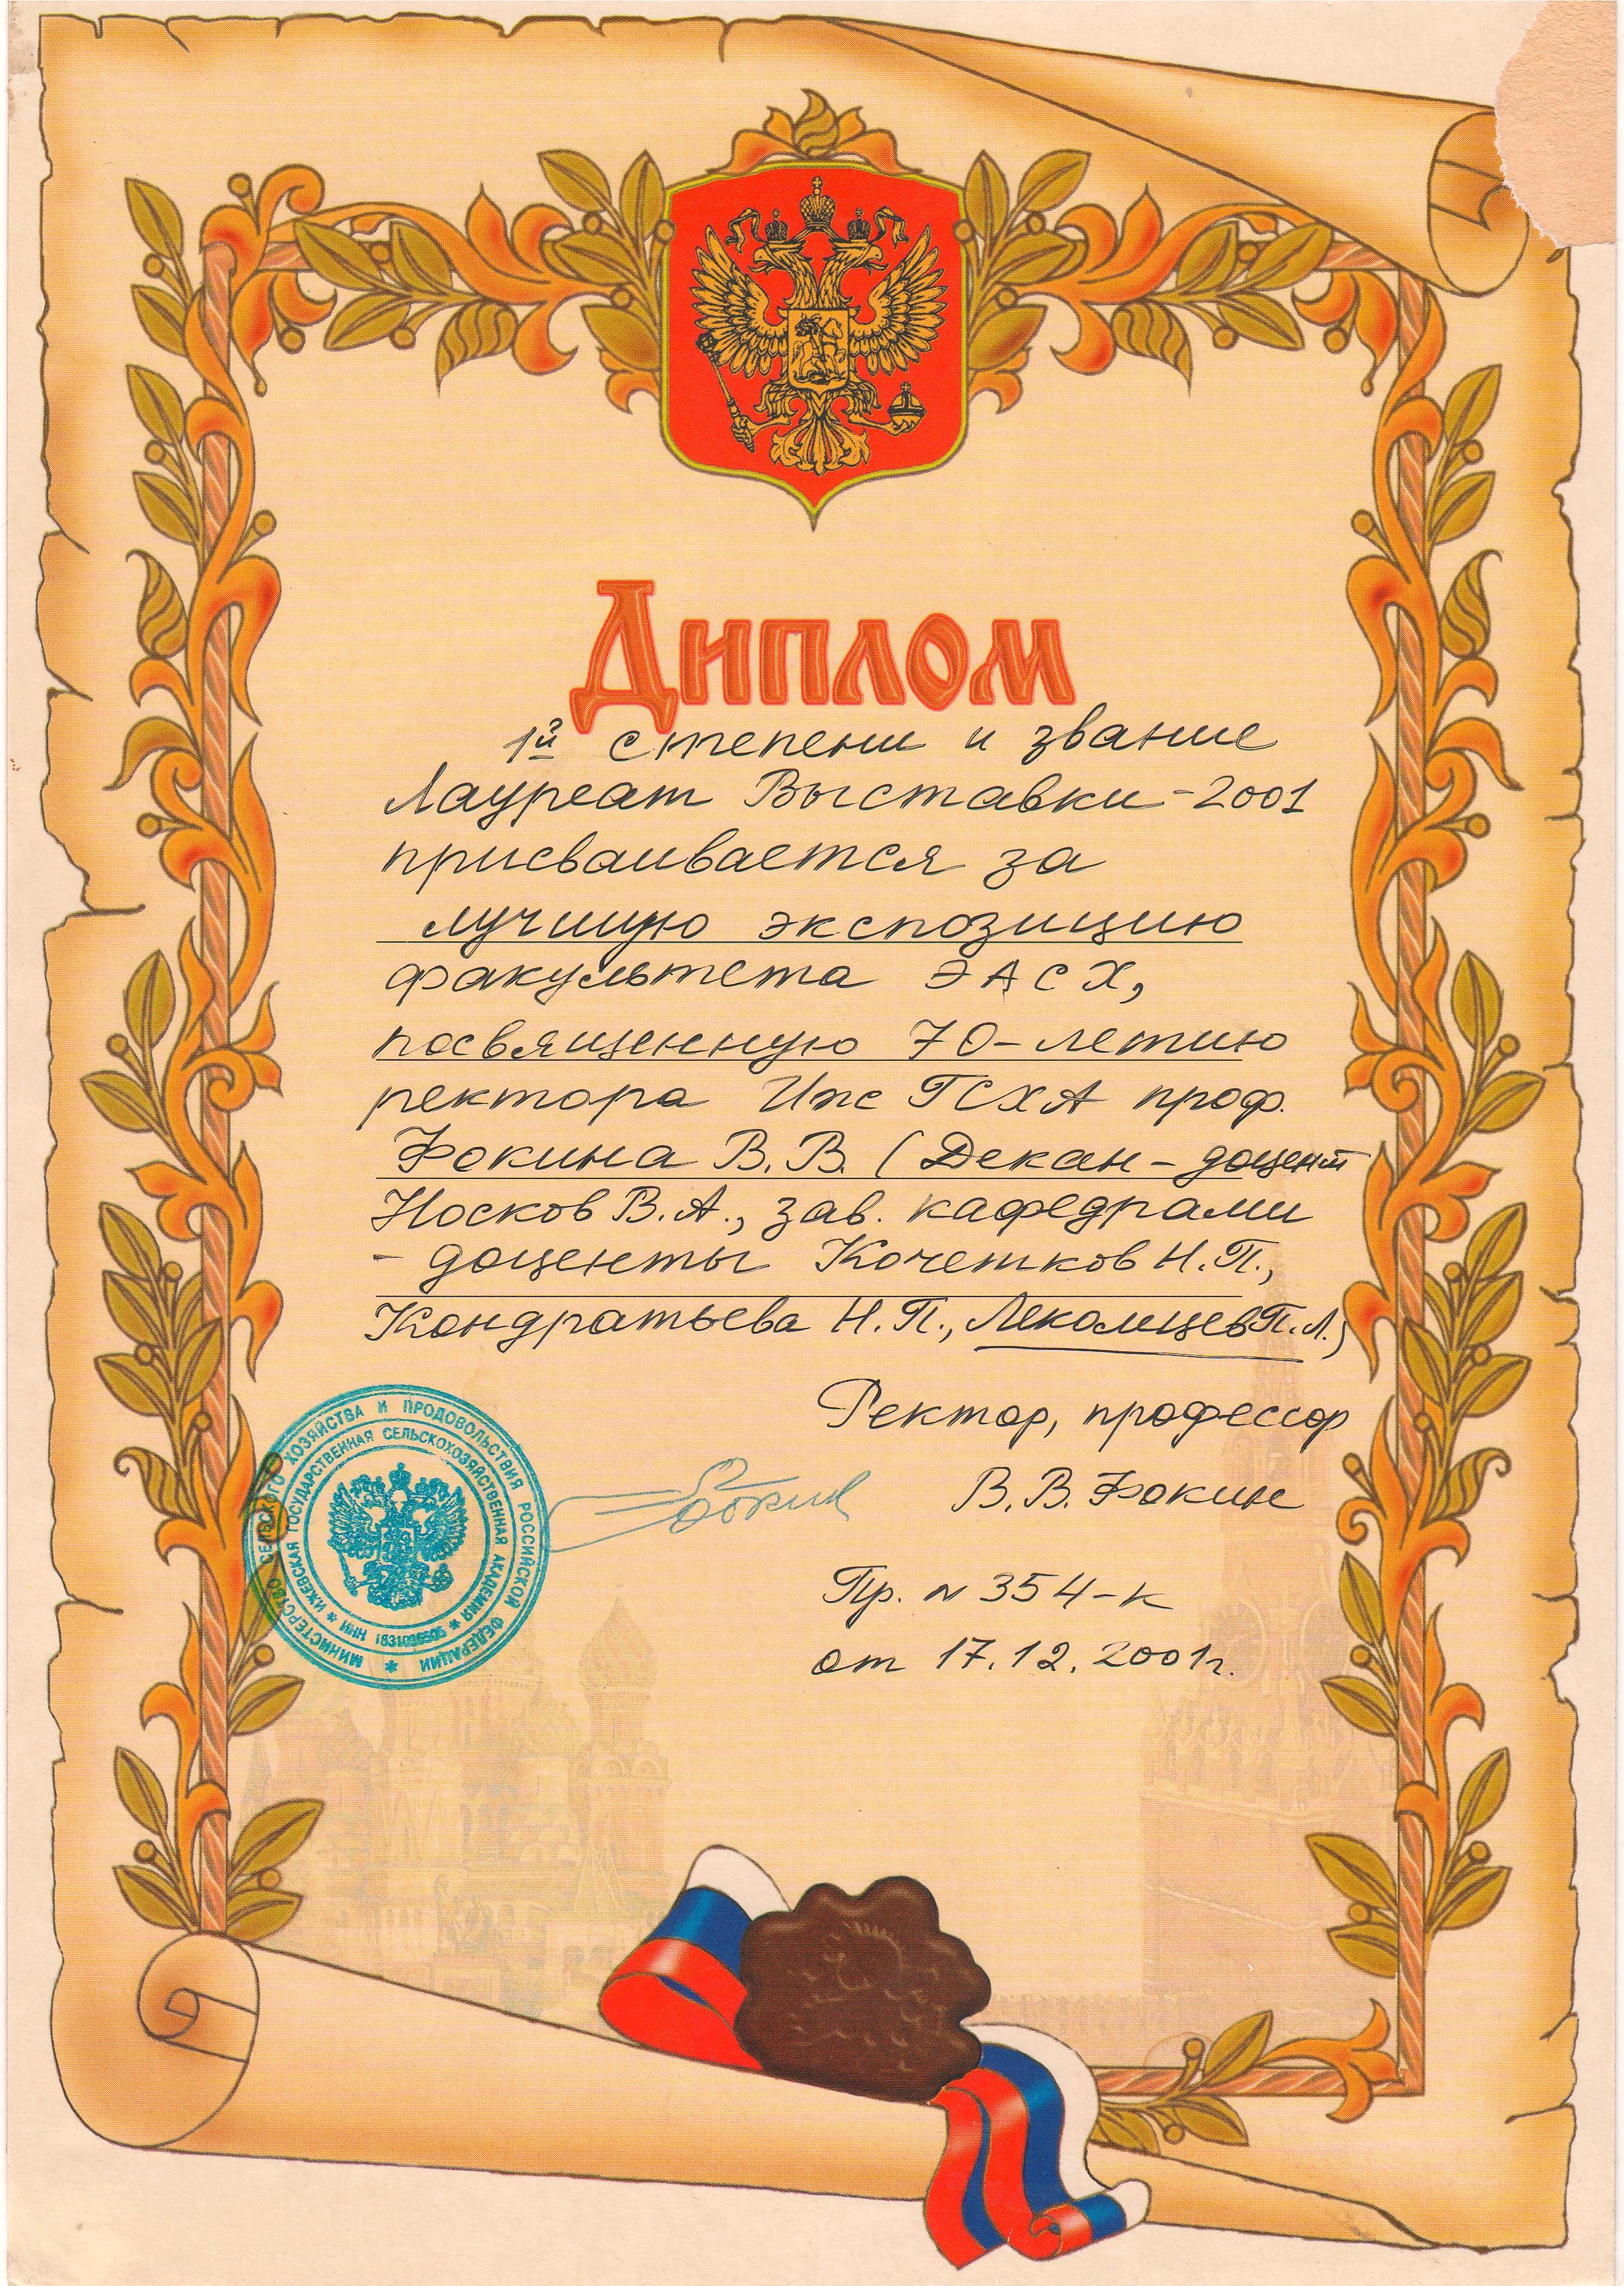 Диплом
1й степени и звание
Лауреат Выставки-2001
присваивается за
лучшую экспозицию
факультета ЭАСХ,
посвященную 70-летию
ректора Иж ГСХА проф.
Фокина В.В. (Декан - доцент
Носков В.А., зав. кафедрами
- доценты Кочетков Н.П.,
Кондратьева Н.П., Лекомцев П.Л.)
Ректор, профессор
В.В. Фокин
Фокин
Пр. N 354-к
от 17.12.2001г.
МИНИСТЕРСТВО СЕЛЬСКОГО ХОЗЯЙСТВА И ПРОДОВОЛЬСТВИЯ РОССИЙСКОЙ ФЕДЕРАЦИИ *
ИЖЕВСКАЯ ГОСУДАРСТВЕННАЯ СЕЛЬСКОХОЗЯЙСТВЕННАЯ АКАДЕМИЯ *
* ИНН